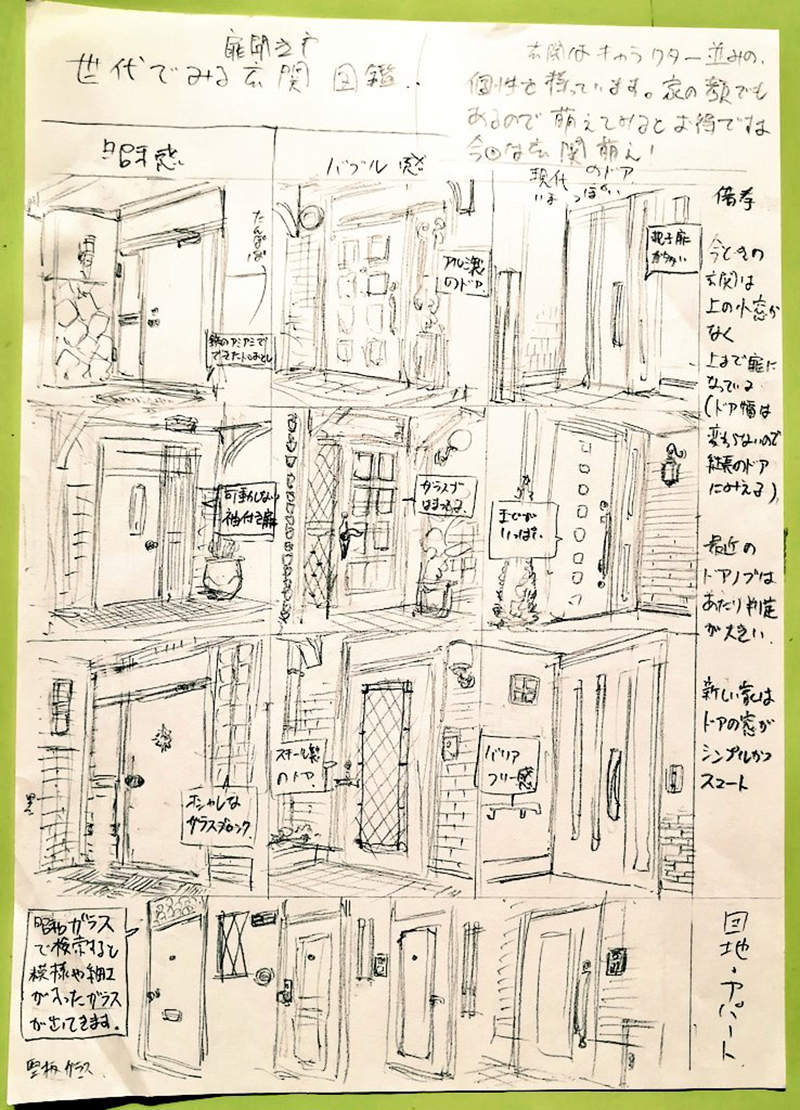 扉開立方
世代でみる玄関 図鑑..
玄関はキャラクター並みの、
個性を持っています。家の顔でも
あるので萌えてみるとお得ですね
今回は玄関萌え!
昭和感
バブル感
現代
のドア
いまっぽかい
たんぽぽ
鉄のアミアミで
できたドロおとし
アルミ製
のドア
親子扉
がちがい
備考
今どきの
玄関は
上の小窓が
なく
上まで扉に
なっている
(ドア幅は
変わらないので
縦長のドア
にみえる)
最近の
ドアノブは
あたり判定
が大きい
新しい家は
ドアの窓が
シンプルかつ
スマート
可動しない
袖付き扉
ガラスブ
はまってる
まどが
いっぱい
オシャレな
ガラスブロック
スチール製
のドア
バリア
フリー感
昭和ガラス
で検索すると
模様や細工
が入ったガラス
が出てきます。
型板ガラス
団地・アパート